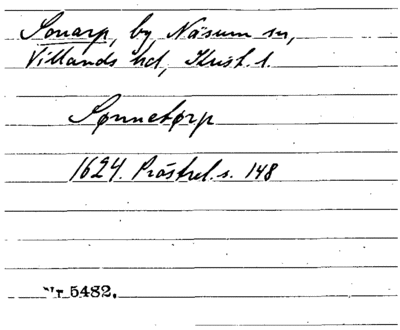 Sonarp, by Näsum sn,
Villands hd, Krist. l.
Sønnetorp
1624. Prästrel. s. 148
Nr 5482.